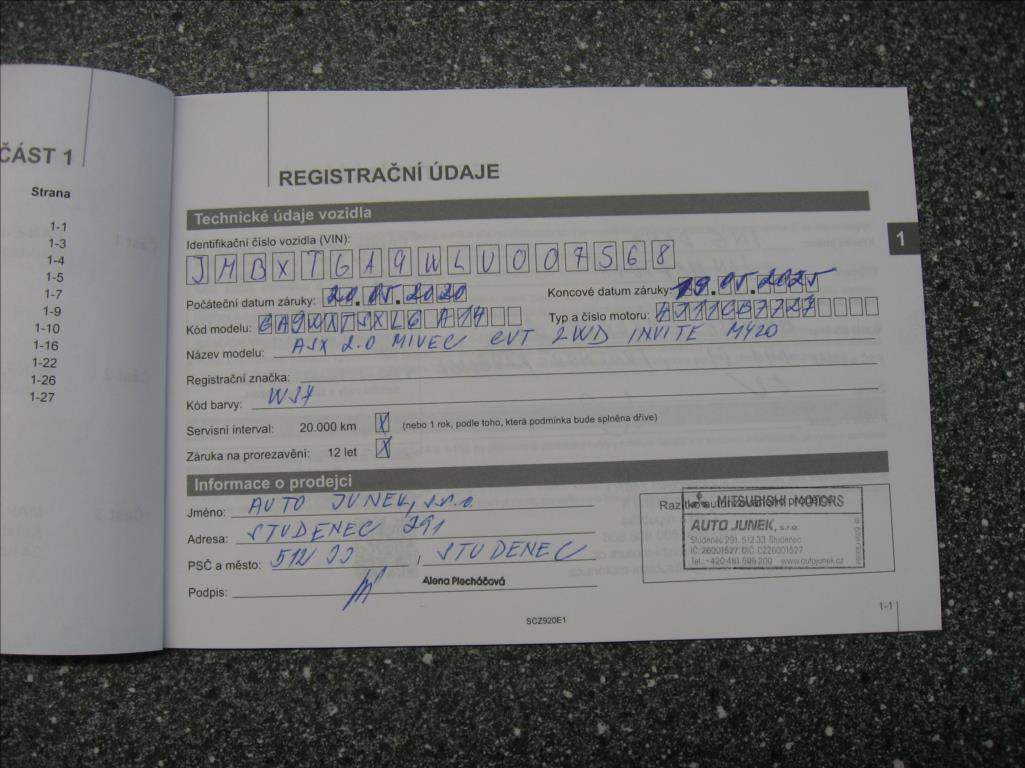 ČÁST 1
Strana
1-1
1-3
1-4
1-5
1-7
1-9
1-10
1-16
1-22
1-26
1-27
REGISTRAČNÍ ÚDAJE
Technické údaje vozidla
1
Identifikační číslo vozidla (VIN):
JMBXTGA9WLU007568
Počáteční datum záruky: 20.05.2020
Koncové datum záruky: 19.05.2025
Kód modelu: GA9WXTSXL6 A14
Typ a číslo motoru:
Název modelu: ASX 2.0 MIVEC CVT 2WD INVITE MY20
Registrační značka:
Kód barvy:
Servisní interval: 20.000 km X (nebo 1 rok, podle toho, která podmínka bude splněna dříve)
Záruka na prorezavění: 12 let X
Informace o prodejci
Jméno: AUTO JUNEK, s.r.o.
Adresa: STUDENEC 291
PSČ a město: 512 33 / STUDENEC
Podpis:
Alena Plecháčová
Razítko autorizovaného prodejce
MITSUBISHI MOTORS
AUTO JUNEK, s.r.o.
Studenec 291, 512 33 Studenec
IČ: 26001527 DIČ: CZ26001527
Tel.: +420 481 595 200 www.autojunek.cz
SCZ920E1
1-1